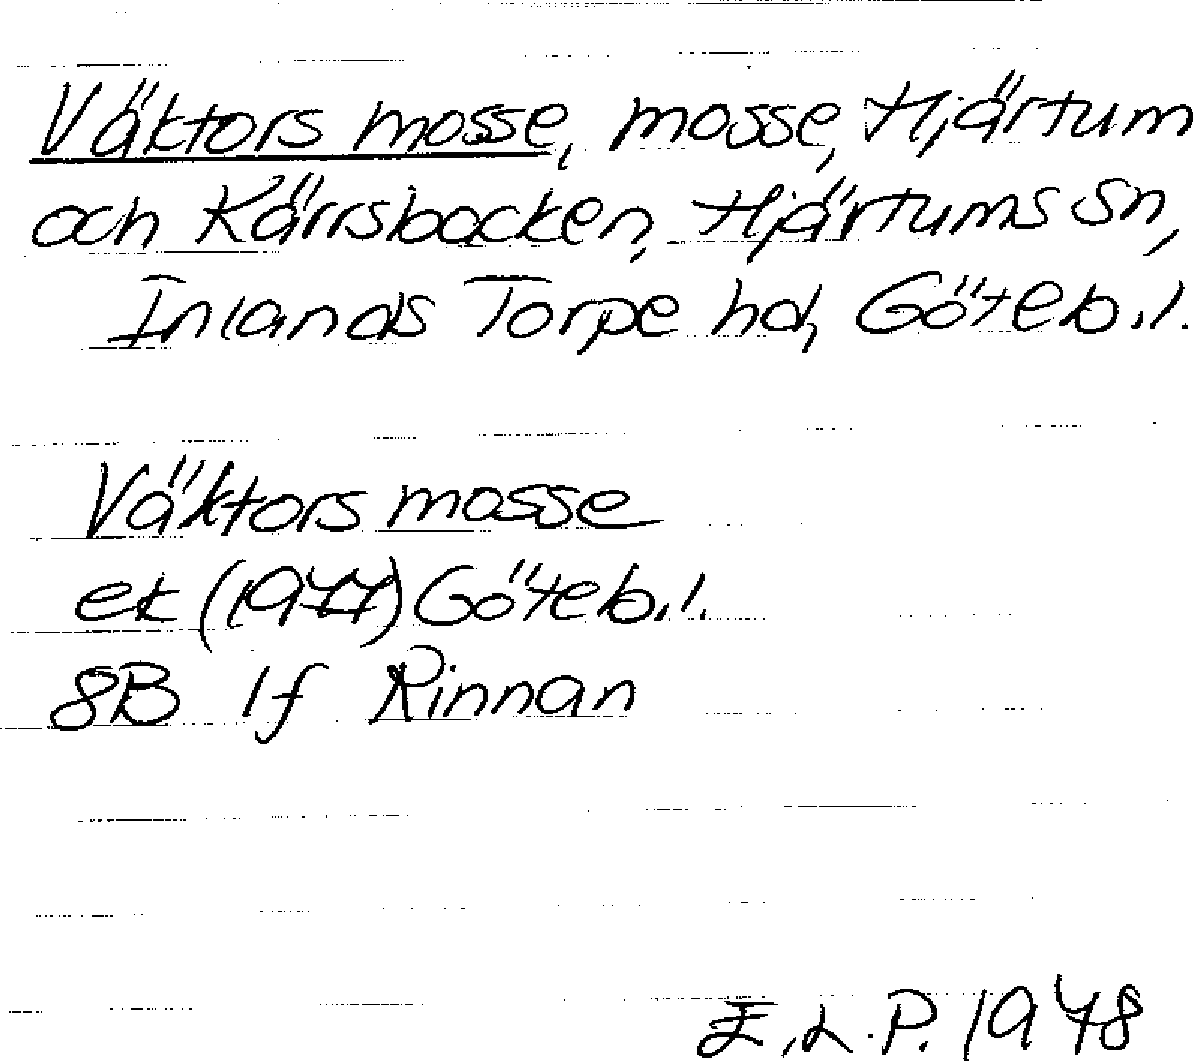 Väktors mosse, mosse, Hjärtum
och Kärrsbacken, Hjärtums sn,
Inlands Torpe hd, Göteb.l.
Väktors mosse
ek (1977) Göteb.l.
8B 1f Rinnan
E.L.P. 1978